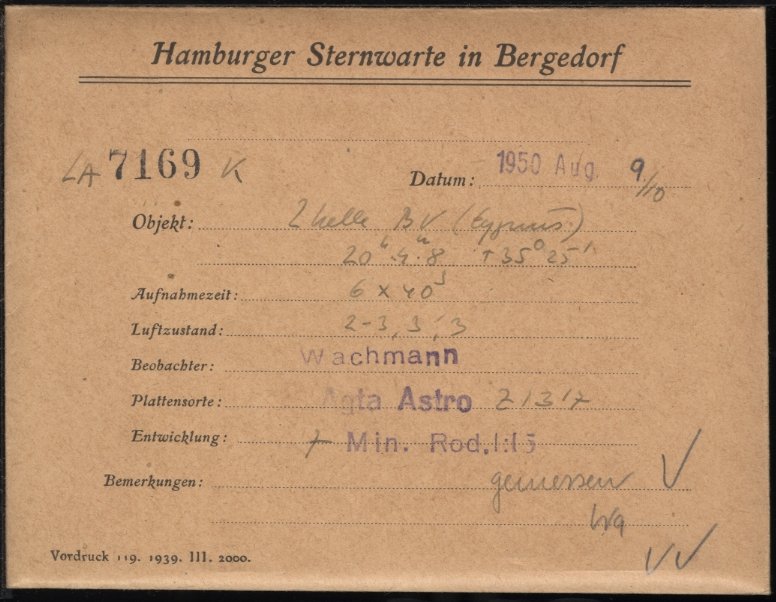 Hamburger Sternwarte in Bergedorf
LA 7169 K
Datum: 1950 Aug. 9/10
Objekt: 2 helle BV (Cygnus)
20ʰ 4ᵐ.8 +35° 25'
Aufnahmezeit: 6 x 40ˢ
Luftzustand: 2-3, 3, 3
Beobachter: Wachmann
Plattensorte: Agfa Astro 2137
Entwicklung: 7 Min. Rod. 1:15
Bemerkungen: gemessen
Wa
Vordruck 119. 1939. III. 2000.